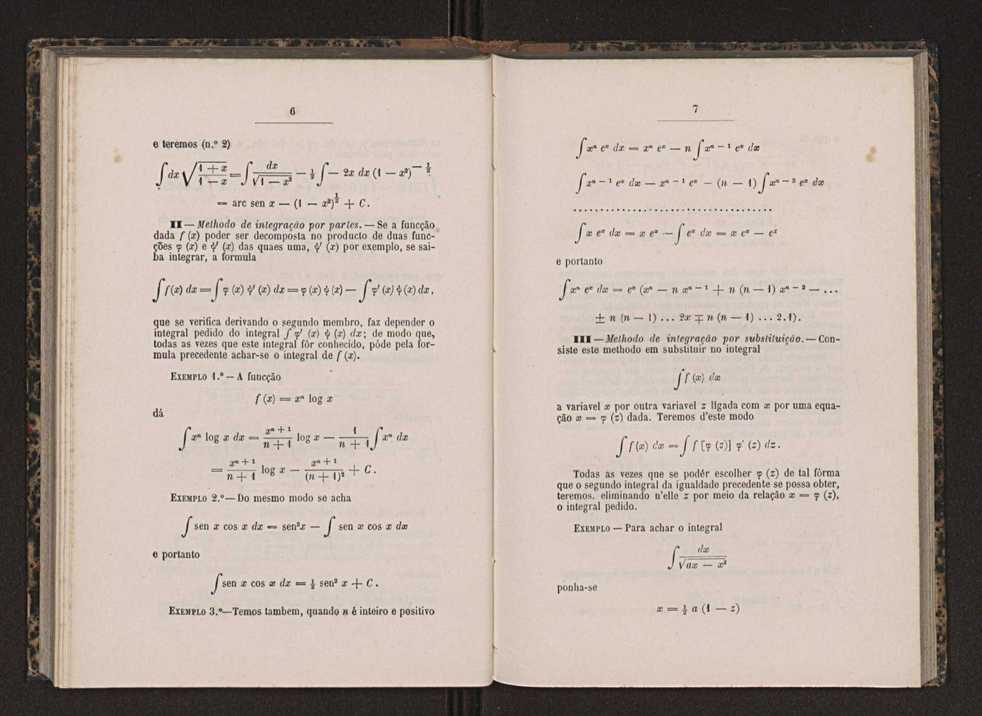 6
e teremos (n.º 2)
∫ dx √((1 + x)/(1 − x)) = ∫ dx/√(1 − x²) − ½ ∫ − 2x dx (1 − x²)^(− ½)
= arc sen x − (1 − x²)^½ + C.
II — Methodo de integração por partes. — Se a funcção
dada f (x) poder ser decomposta no producto de duas func-
ções φ (x) e ψ′ (x) das quaes uma, ψ′ (x) por exemplo, se sai-
ba integrar, a formula
∫ f(x) dx = ∫ φ (x) ψ′ (x) dx = φ (x) ψ (x) − ∫ φ′ (x) ψ (x) dx,
que se verifica derivando o segundo membro, faz depender o
integral pedido do integral ∫ φ′ (x) ψ (x) dx; de modo que,
todas as vezes que este integral fôr conhecido, póde pela for-
mula precedente achar-se o integral de f (x).
EXEMPLO 1.º — A funcção
f (x) = xⁿ log x
dá
∫ xⁿ log x dx = xⁿ ⁺ ¹/(n + 1) log x − 1/(n + 1) ∫ xⁿ dx
= xⁿ ⁺ ¹/(n + 1) log x − xⁿ ⁺ ¹/(n + 1)² + C.
EXEMPLO 2.º — Do mesmo modo se acha
∫ sen x cos x dx = sen²x − ∫ sen x cos x dx
e portanto
∫ sen x cos x dx = ½ sen² x + C.
EXEMPLO 3.º — Temos tambem, quando n é inteiro e positivo
7
∫ xⁿ eˣ dx = xⁿ eˣ − n ∫ xⁿ ⁻ ¹ eˣ dx
∫ xⁿ ⁻ ¹ eˣ dx = xⁿ ⁻ ¹ eˣ − (n − 1) ∫ xⁿ ⁻ ² eˣ dx
......................................
∫ x eˣ dx = x eˣ − ∫ eˣ dx = x eˣ − eˣ
e portanto
∫ xⁿ eˣ dx = eˣ (xⁿ − n xⁿ ⁻ ¹ + n (n − 1) xⁿ ⁻ ² − ...
± n (n − 1) ... 2x ∓ n (n − 1) ... 2.1).
III — Methodo de integração por substituição. — Con-
siste este methodo em substituir no integral
∫ f (x) dx
a variavel x por outra variavel z ligada com x por uma equa-
ção x = φ (z) dada. Teremos d'este modo
∫ f (x) dx = ∫ f [φ (z)] φ′ (z) dz.
Todas as vezes que se podér escolher φ (z) de tal fórma
que o segundo integral da igualdade precedente se possa obter,
teremos, eliminando n'elle z por meio da relação x = φ (z),
o integral pedido.
EXEMPLO — Para achar o integral
∫ dx/√(ax − x²)
ponha-se
x = ½ a (1 − z)